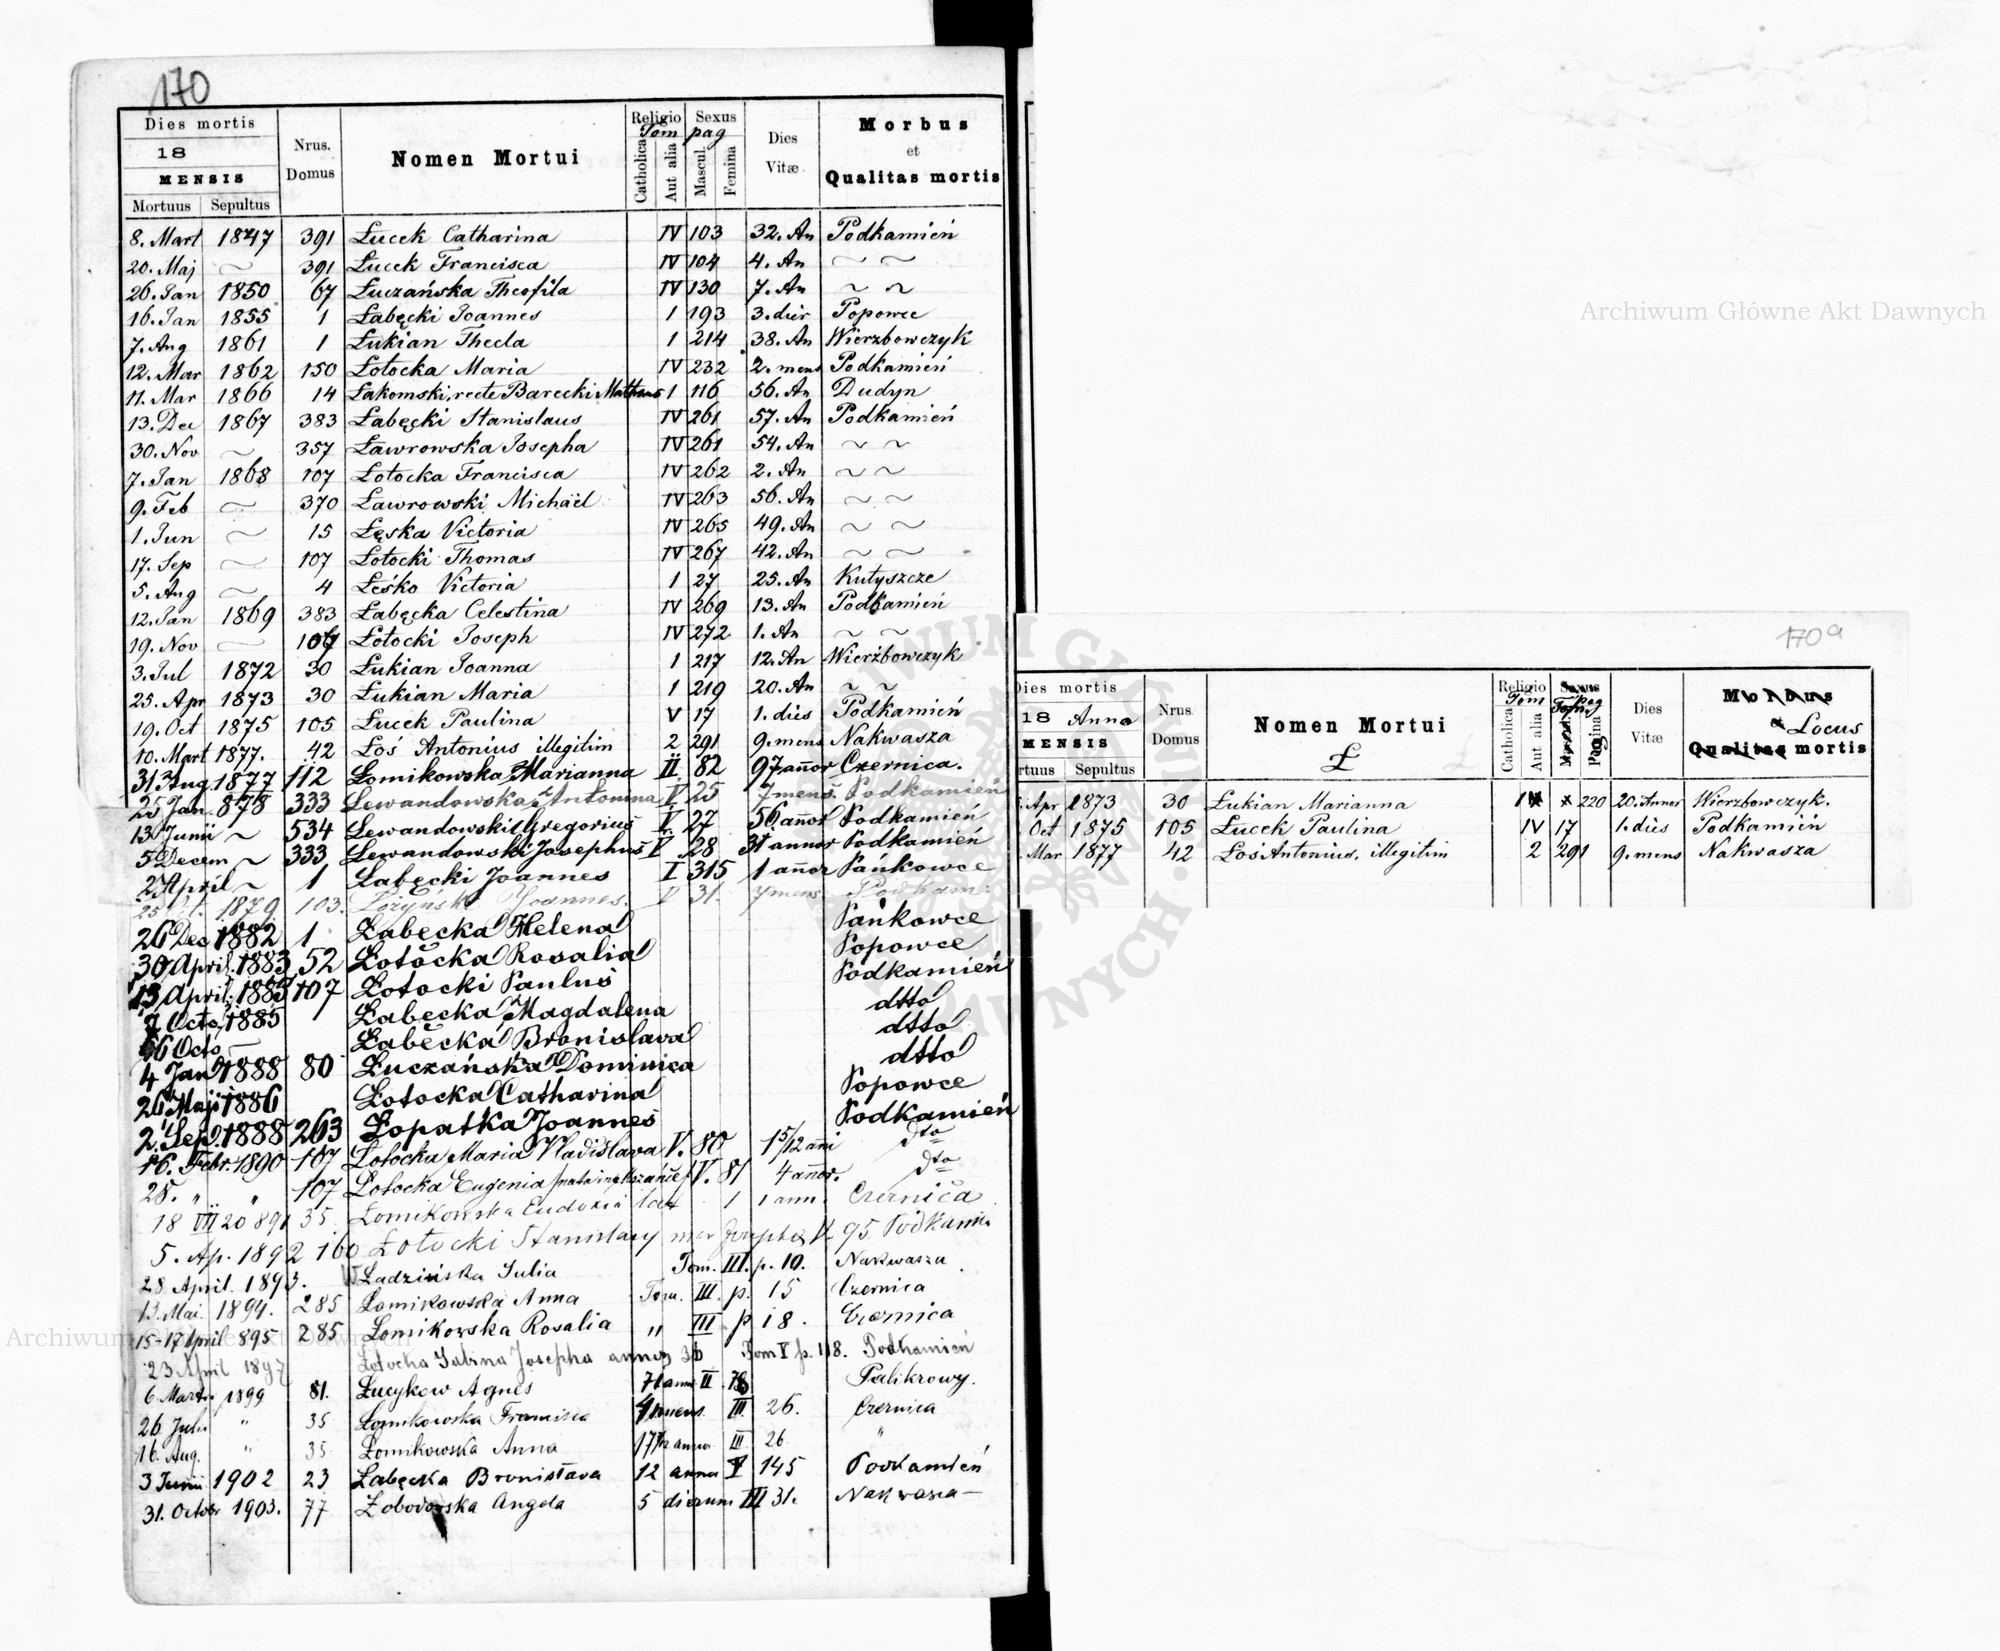 170
Dies mortis Nrus. Domus Nomen Mortui Religio Sexus Dies Vitæ Morbus et Qualitas mortis
18 Tom pag
MENSIS Catholica Aut alia Mascul. Femina
Mortuus Sepultus
8. Mart 1847 391 Łucek Catharina IV 103 32. An Podkamień
20. Maj ~ 391 Łucek Francisca IV 104 4. An ~ ~
26. Jan 1850 67 Łuczańska Theofila IV 130 7. An ~ ~
16. Jan 1855 1 Łabęcki Joannes 1 193 3. dier Popowce
7. Aug 1861 1 Łukian Thecla 1 214 38. An Wierzbowczyk
12. Mar 1862 150 Łotocka Maria IV 232 2. mens Podkamień
11. Mar 1866 14 Łakomski, recte Barecki Mathaus 1 116 56. An Dudyn
13. Dec 1867 383 Łabęcki Stanislaus IV 261 57. An Podkamień
30. Nov ~ 357 Ławrowska Josepha IV 261 54. An ~ ~
7. Jan 1868 107 Łotocka Francisca IV 262 2. An ~ ~
9. Feb ~ 370 Ławrowski Michäel IV 263 56. An ~ ~
1. Jun ~ 15 Łęska Victoria IV 265 49. An ~ ~
17. Sep ~ 107 Łotocki Thomas IV 267 42. An ~ ~
5. Aug ~ 4 Łeśko Victoria 1 27 25. An Kutyszcze
12. Jan 1869 383 Łabęcka Celestina IV 269 13. An Podkamień
19. Nov ~ 107 Łotocki Joseph IV 272 1. An ~ ~
3. Jul 1872 30 Łukian Joanna 1 217 12. An Wierzbowczyk
25. Apr 1873 30 Łukian Maria 1 219 20. An ~ ~
19. Oct 1875 105 Łucek Paulina V 17 1. dies Podkamień
10. Mart 1877. 42 Łoś Antonius illegitim 2 291 9. mens Nakwasza
31 Aug 1877 112 Łomikowska Marianna II 82 97 añor Czernica.
25 Jan. 878 333 Łewandowska Antonina V 25 7 mens. Podkamień
13 Junii ~ 534 Łewandowski Gregorius V. 27 56 añor Podkamień
5 Decem ~ 333 Łewandowski Josephus V 28 31 annor Podkamień
2 April ~ 1 Łabęcki Joannes I 315 1 añor Pańkowce
25 1879 103. Joannes. V 31. 7 mens Podkam:
26 Dec 1882 1 Łabecka Helena Pańkowce
30 April. 1883 52 Łotocka Rosalia Popowce
13 April. 1885 107 Łotocki Paulus Podkamień
7 Octo. 1885 Łabecka Magdalena dtto
Octo — Łabecka Bronislava dtto
4 Jan 1888 80 Łuczańska Dominica dtto
26 Maji 1886 Łotocka Catharina Popowce
2. Sep. 1888 263 Łopatka Joannes Podkamień
16. Febr. 1890 107 Łotocka Maria Vladislava V. 80 1 5/12 añi dto
28. " " 107 Łotocka Eugenia V. 81 4 añor. dto
18 VII 20 891 35 Łomikowska Eudoxia 1 1 ann. Czernica
5. Ap. 1892 160 Łotocki Stanislaus V 95 Podkamie
28 April. 1893. Ładzińska Julia Tom. III. p. 10. Nakwasza
13. Mai. 1894. 285 Łomikowska Anna Tom. III. p. 15 Czernica
15-17 April 895 285 Łomikowska Rosalia " III p 18. Czernica
23 April 1897 Łotocka Sabina Josepha annor 36 Tom V p. 118. Podkamień
6 Martii 1899 81. Łucykow Agnes 71 ann II 78 Palikrowy.
26 Julii " 35 Łomikowska Francisca mens III 26. Czernica
16. Aug. " 35 Łomikowska Anna III 26 "
3 Junii 1902 23 Łabęcka Bronisława 12 anno V 145 Podkamień
31. Octobr 1903. 77 Łobodowska Angela 5 dierum III 31. Nakwasza —
170 a
Dies mortis Nrus. Domus Nomen Mortui Religio Sexus Dies Vitæ Morbus et Locus
18 Anno Ł Tom pag Qualitas mortis
MENSIS Catholica Aut alia
rtuus Sepultus
Apr 1873 30 Łukian Marianna 1 220 20. Annor Wierzbowczyk.
Oct 1875 105 Łucek Paulina IV 17 1. dies Podkamień
Mar 1877 42 Łoś Antonius, illegitim 2 291 9. mens Nakwasza
Archiwum Główne Akt Dawnych